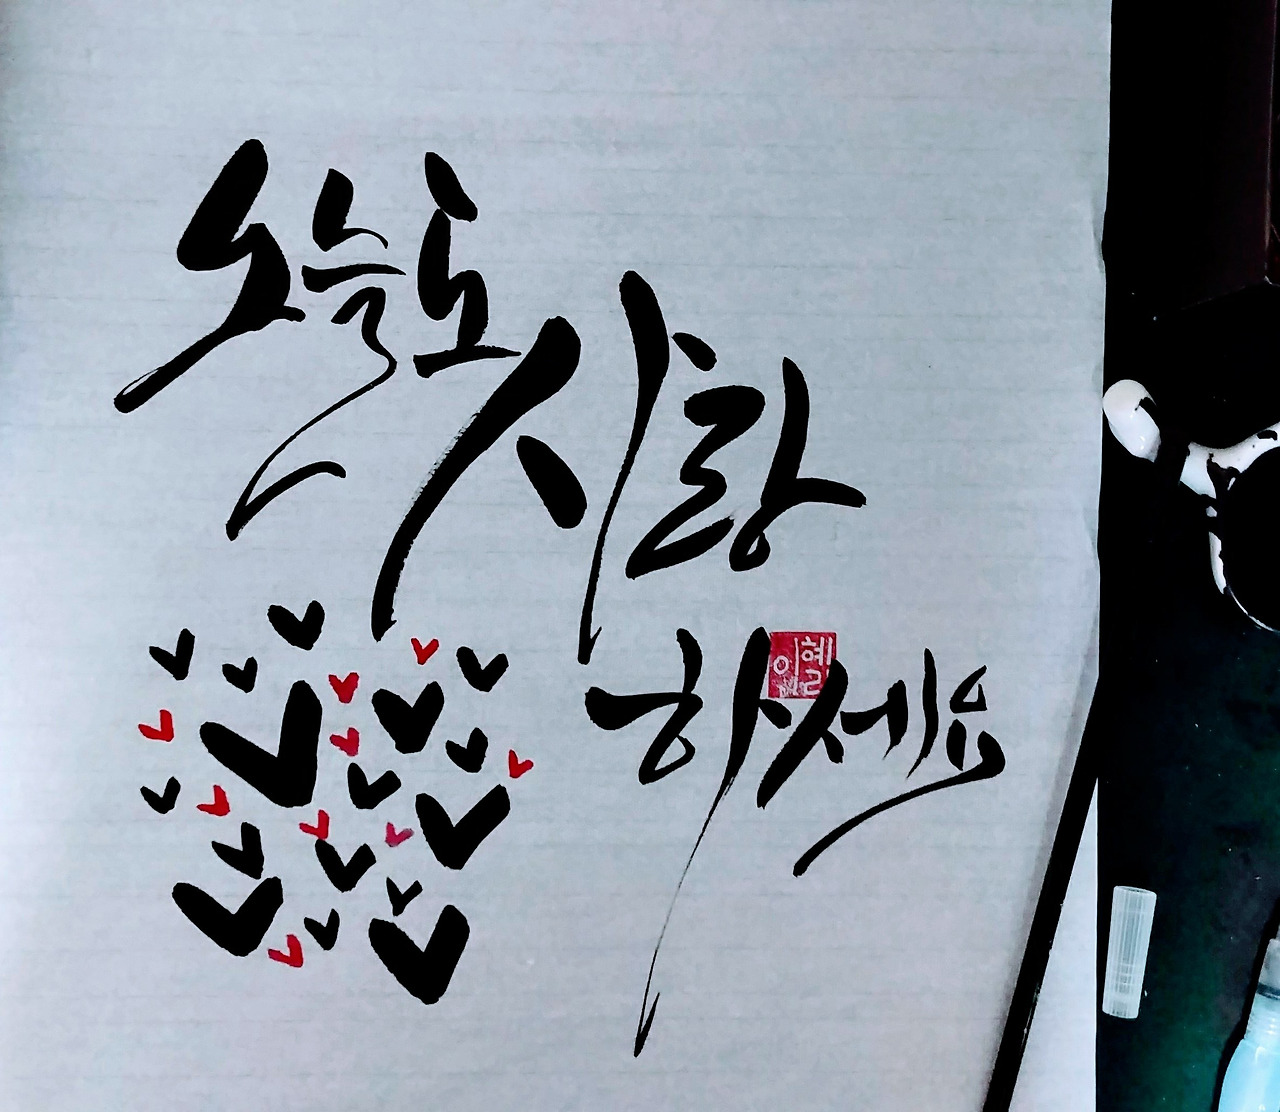 오늘도
사랑
하세요